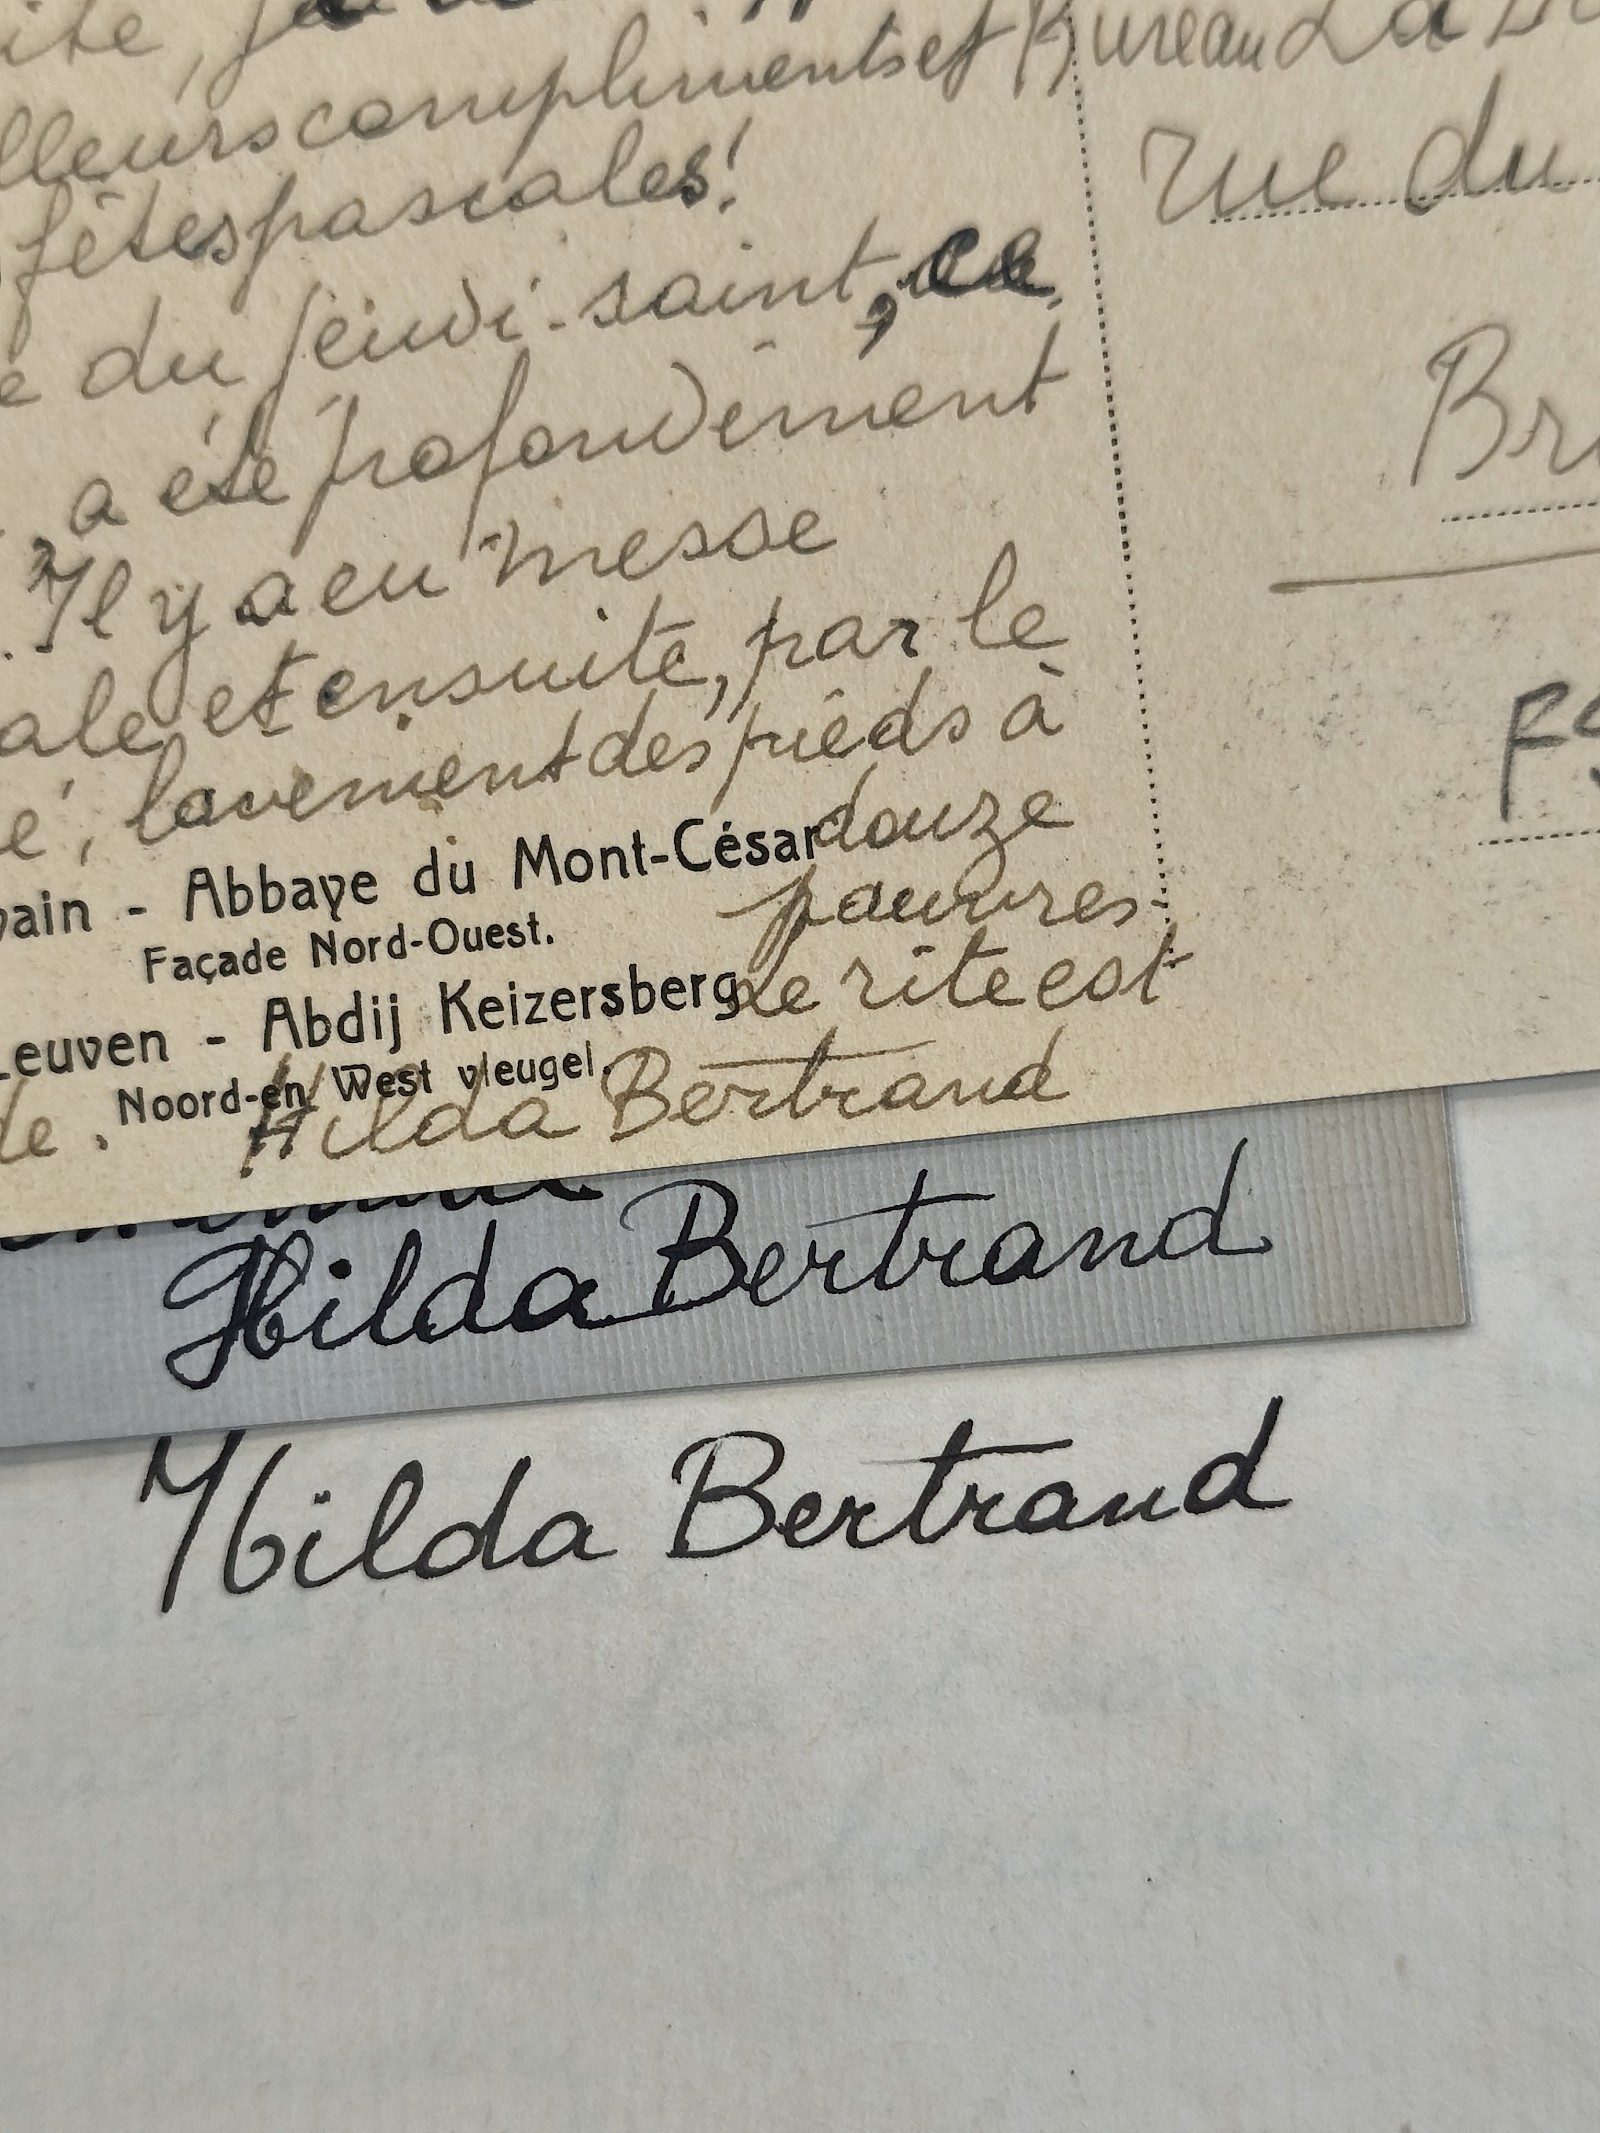 lleurs compliments et
fêtes pascales!
du jeudi-saint, ce
a été profondément
Il y a eu messe
ale et ensuite, par le
é, lavement des pieds à
douze
pauvres.
Le rite est
de. Hilda Bertrand
vain - Abbaye du Mont-César
Façade Nord-Ouest.
Leuven - Abdij Keizersberg
Noord-en West vleugel.
Bureau La
rue du
Br
Hilda Bertrand
Hilda Bertrand